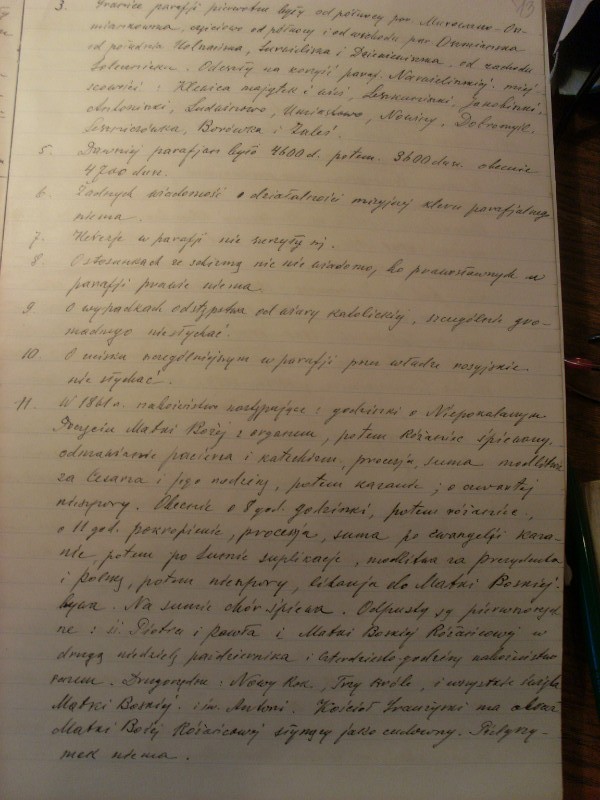 13
3. Granice parafji pierwotne były od północy par. Murowano-Osz-
miankowska, częściowo od północy i od wschodu par. Oszmiańska
od południa Holszańska, Surwiliska i Dziewieniska, od zachodu
Solecznicka. Odeszły na korzyść paraf. miej-
scowości: Klewica majątek i wieś, Leszkuciński, Janobińskí,
Antoninki, Ludwinowo, Umiastowo, Nowiny, Dobromyśl,
Leszczcówka, Borówka i Zaleś.
5. Dawniej parafjan było 4600 d. potem 3600 dusz. obecnie
4700 dusz.
6. Żadnych wiadomości o działalności misyjnej kleru parafjalnego
niema.
7. Herezje w parafji nie szerzyły się.
8. O stosunkach ze schizmą nic nie wiadomo, bo prawosławnych w
parafji prawie niema.
9. O wypadkach odstępstwa od wiary katolickiej, szczególnie gro-
madnego niesłychać.
10. O ucisku szczególniejszym w parafji przez władze rosyjskie
nie słychać.
11. W 1861 r. nabożeństwa następujące: godzinki o Niepokalanym
Poczęciu Matki Bożej z organem, potem Różaniec śpiewany,
odmawianie pacierza i katechizm, procesja, suma modlitwa
za Cesarza i jego rodzinę, potem kazanie; o czwartej
nieszpory. Obecnie o 8 god. godzinki, potem różaniec,
o 11 god. pokropienie, procesja, suma po ewangelji kaza-
nie, potem po sumie suplikacje, modlitwa za Prezydenta
i Polskę, potem nieszpory, litanja do Matki Boskiej
bywa. Na sumie chór śpiewa. Odpusty są pierwszorzęd-
ne: śś. Piotra i Pawła i Matki Boskiej Różańcowej w
drugą niedzielę października i czterdziesto-godzinne nabożeństwo
razem. Drugorzędne: Nowy Rok, Trzy Króle, i wszystkie święta
Matki Boskiej i św. Antoni. Kościół ma obraz
Matki Bożej Różańcowej słynący jako cudowny. Pielgrzy-
mek niema.